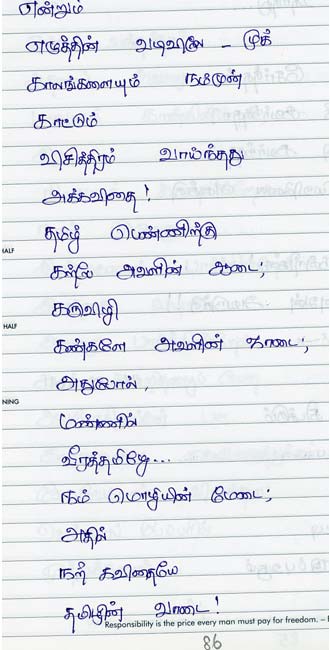 என்றும்
எழுத்தின் வடிவிலே - முக்
காலங்களையும் நம்முன்
காட்டும்
விசித்திரம் வாய்ந்தது
அக்கவிதை!
தமிழ் பெண்ணிற்கு
HALF
கற்பே அவளின் ஆடை;
கருவிழி
HALF
கண்களே அவளின் ஜாடை;
அதுபோல்,
NING
மண்ணில்
வீரத்தமிழே...
நம் மொழியின் மேடை;
அதில்
நற் கவிதையே
தமிழின் வாடை!
Responsibility is the price every man must pay for freedom. –
86